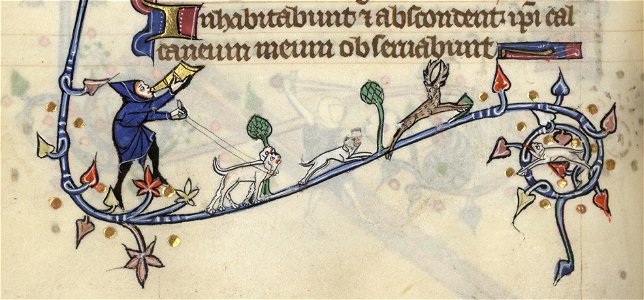 Inhabitabunt ⁊ abscondent: ip̅i cal
caneum meum obseruabunt